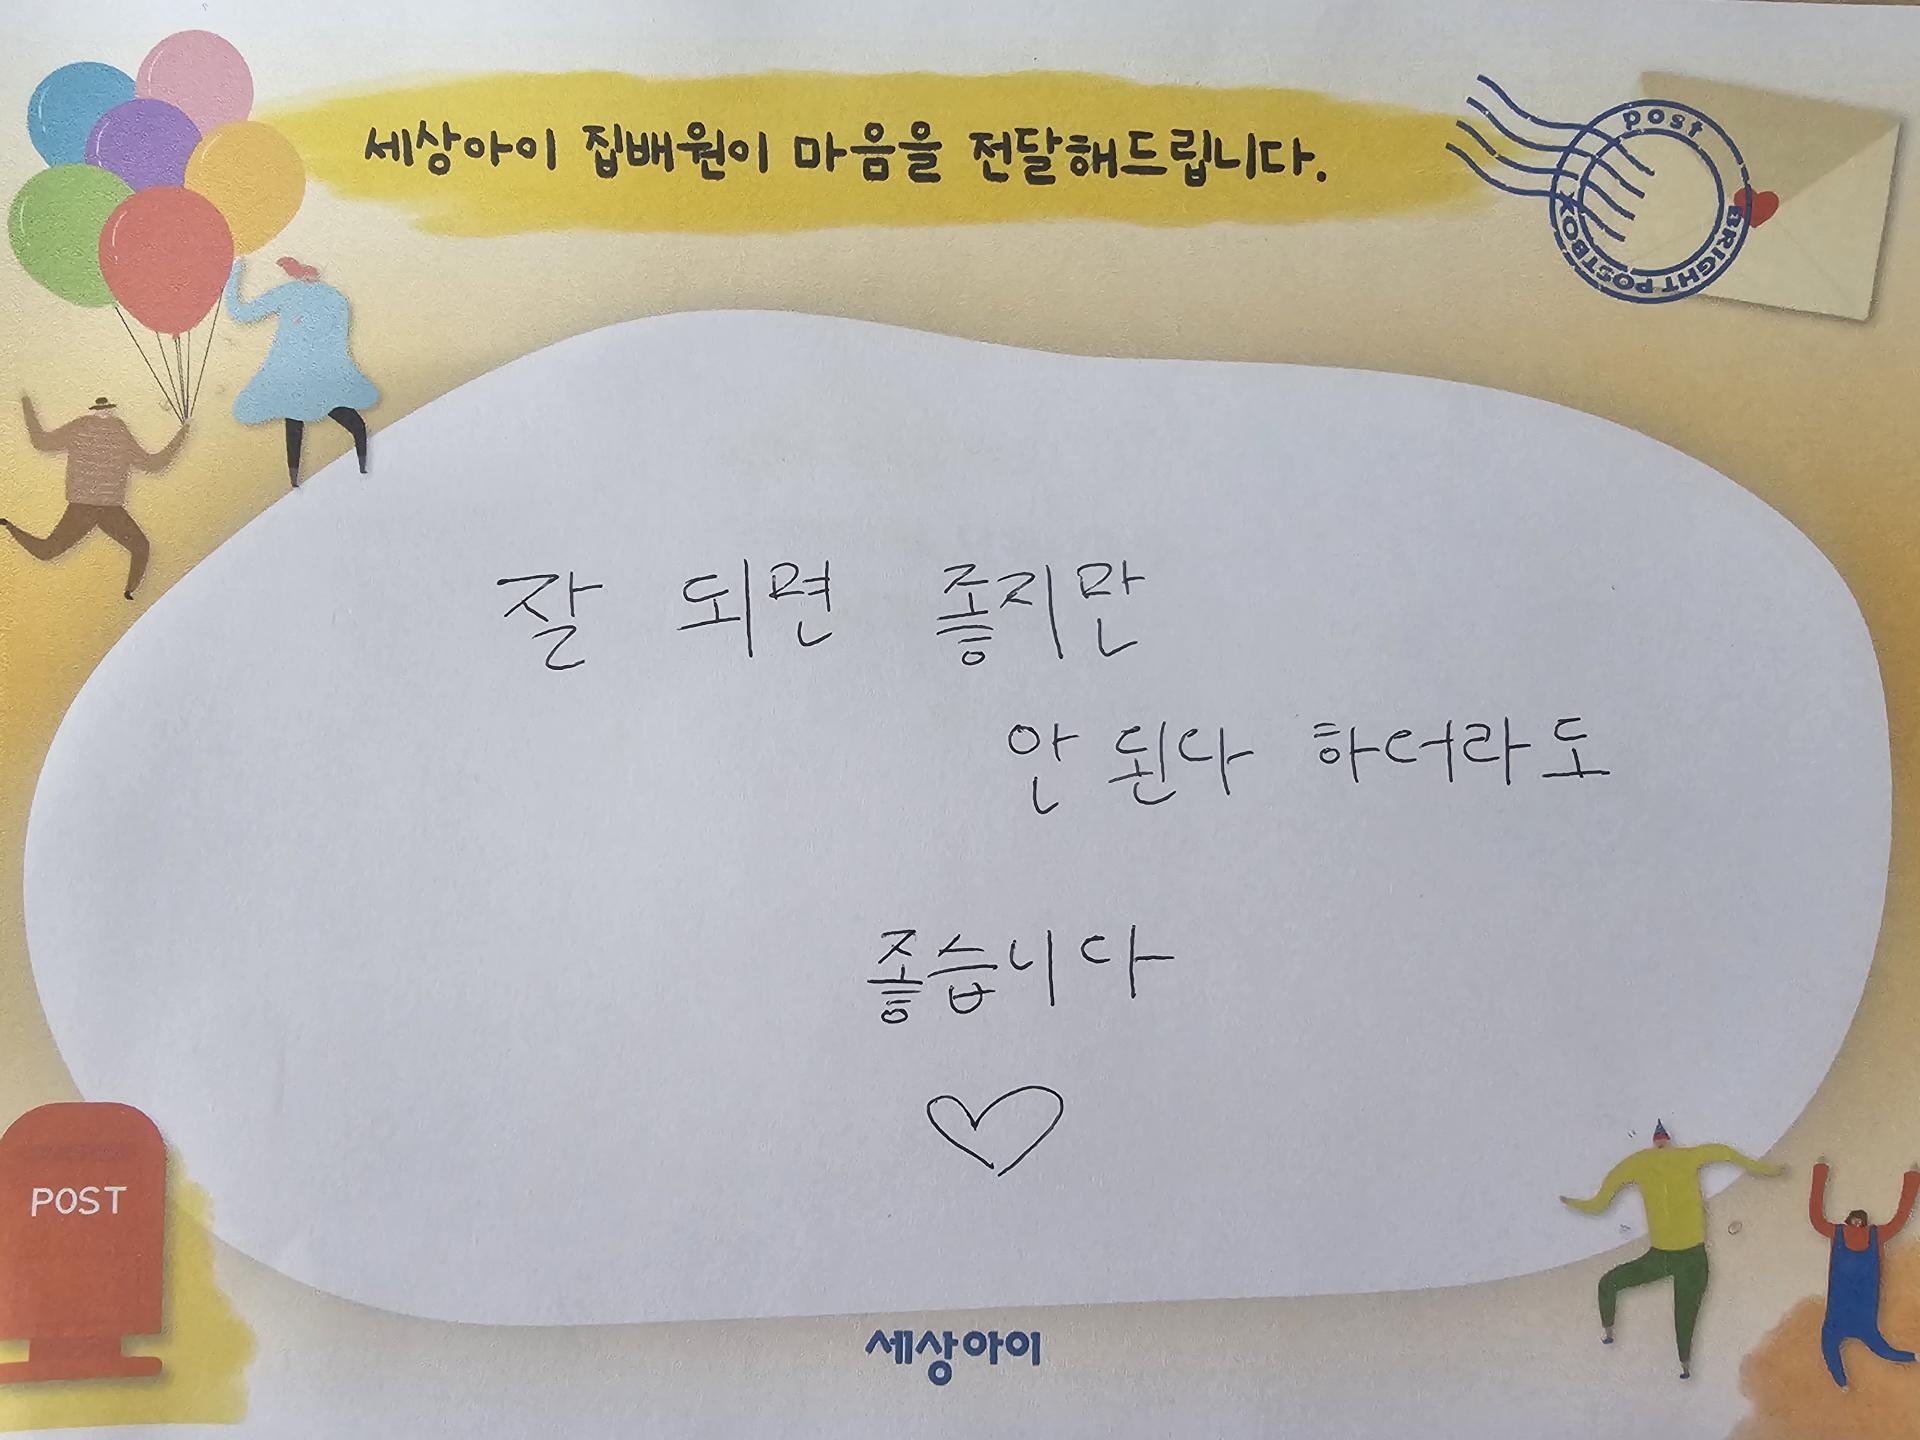 세상아이 집배원이 마음을 전달해드립니다.
post
BRIGHT POSTBOX
잘 되면 좋지만
안 된다 하더라도
좋습니다
POST
세상아이